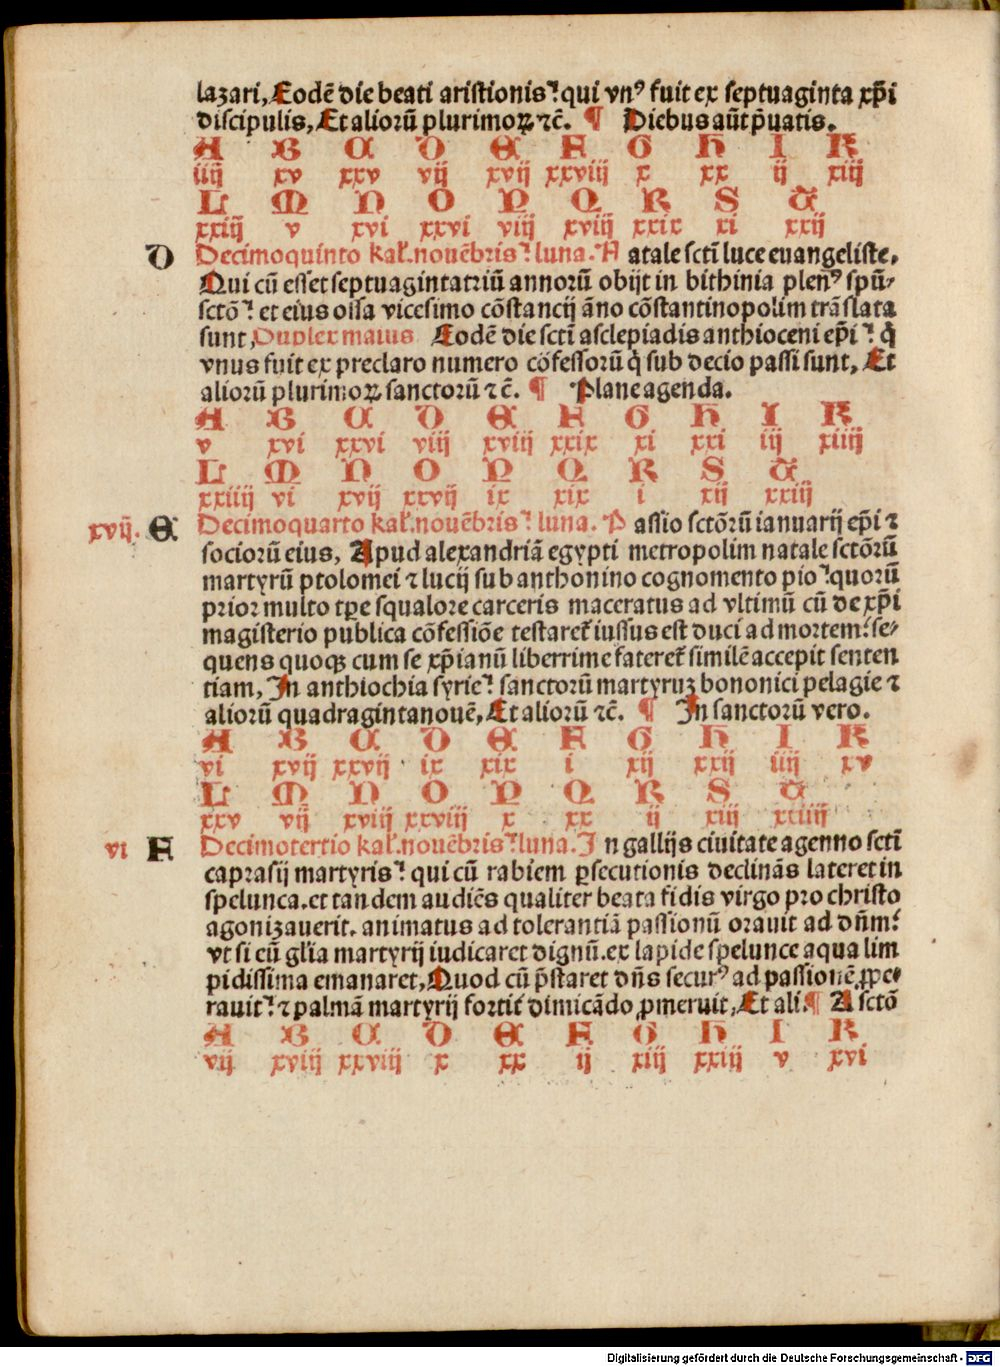 lazari, Eodē die beati aristionis: qui vnꝰ fuit ex septuaginta xp̄i
discipulis, Et aliorū plurimoꝝ ⁊c̄. ¶ Diebus aūt p̄uatis.
A B C D E F G H I K
iiij xv xxv vij xvij xxviij x xx ij xiij
L M N O P Q R S T
xxiij v xvi xxvi viij xviij xxix xi xxij
D Decimoquinto kal̄. nouēbris: luna. N atale sctī luce euangeliste.
Qui cū esset septuagintatriū annorū obijt in bithinia plenꝰ spū-
sctō: et eius ossa vicesimo cōstancij āno cōstantinopolim trāslata
sunt, Duplex maius Eodē die sctī asclepiadis anthioceni ep̄i: q̇
vnus fuit ex preclaro numero cōfessorū q̇ sub decio passi sunt, Et
aliorū plurimoꝝ sanctorū ⁊ c̄. ¶ Plane agenda.
A B C D E F G H I K
v xvi xxvi viij xviij xxix xi xxi iij xiiij
L M N O P Q R S T
xxiiij vi xvij xxvij ix xix i xij xxiij
xvij. E Decimoquarto kal̄. nouēbris: luna. P assio sctōrū ianuarij ep̄i ⁊
sociorū eius, Apud alexandriā egypti metropolim natale sctōrū
martyrū ptolomei ⁊ lucij sub anthonino cognomento pio: quorū
prior multo tꝑe squalore carceris maceratus ad vltimū cū de xp̄i
magisterio publica cōfessiōe testaret̄ iussus est duci ad mortem: se-
quens quoqꝫ cum se xp̄ianū liberrime fateret̄ similē accepit senten
tiam, In anthiochia syrie: sanctorū martyruꝫ bononici pelagie ⁊
aliorū quadragintanouē, Et aliorū ⁊c̄. ¶ In sanctorū vero.
A B C D E F G H I K
vi xvij xxvij ix xix i xij xxij iiij xv
L M N O P Q R S T
xxv vij xviij xxviij x xx ij xiij xxiiij
vi F Decimotertio kal̄. nouēbris: luna. I n gallijs ciuitate agenno sctī
caprasij martyris: qui cū rabiem ꝑsecutionis declinās lateret in
spelunca. et tandem audiēs qualiter beata fidis virgo pro christo
agonizauerit. animatus ad tolerantiā passionū orauit ad dn̄m:
vt si eū gl̄ia martyrij iudicaret dignū. ex lapide spelunce aqua lim
pidissima emanaret, Quod cū p̄staret dn̄s securꝰ ad passionē ꝓpe-
rauit: ⁊ palmā martyrij fortit̄ dimicādo ꝓmeruit, Et ali. ¶ A sctō
A B C D E F G H I K
vij xviij xxviij x xx ij xiij xxiij v xvi
Digitalisierung gefördert durch die Deutsche Forschungsgemeinschaft - DFG